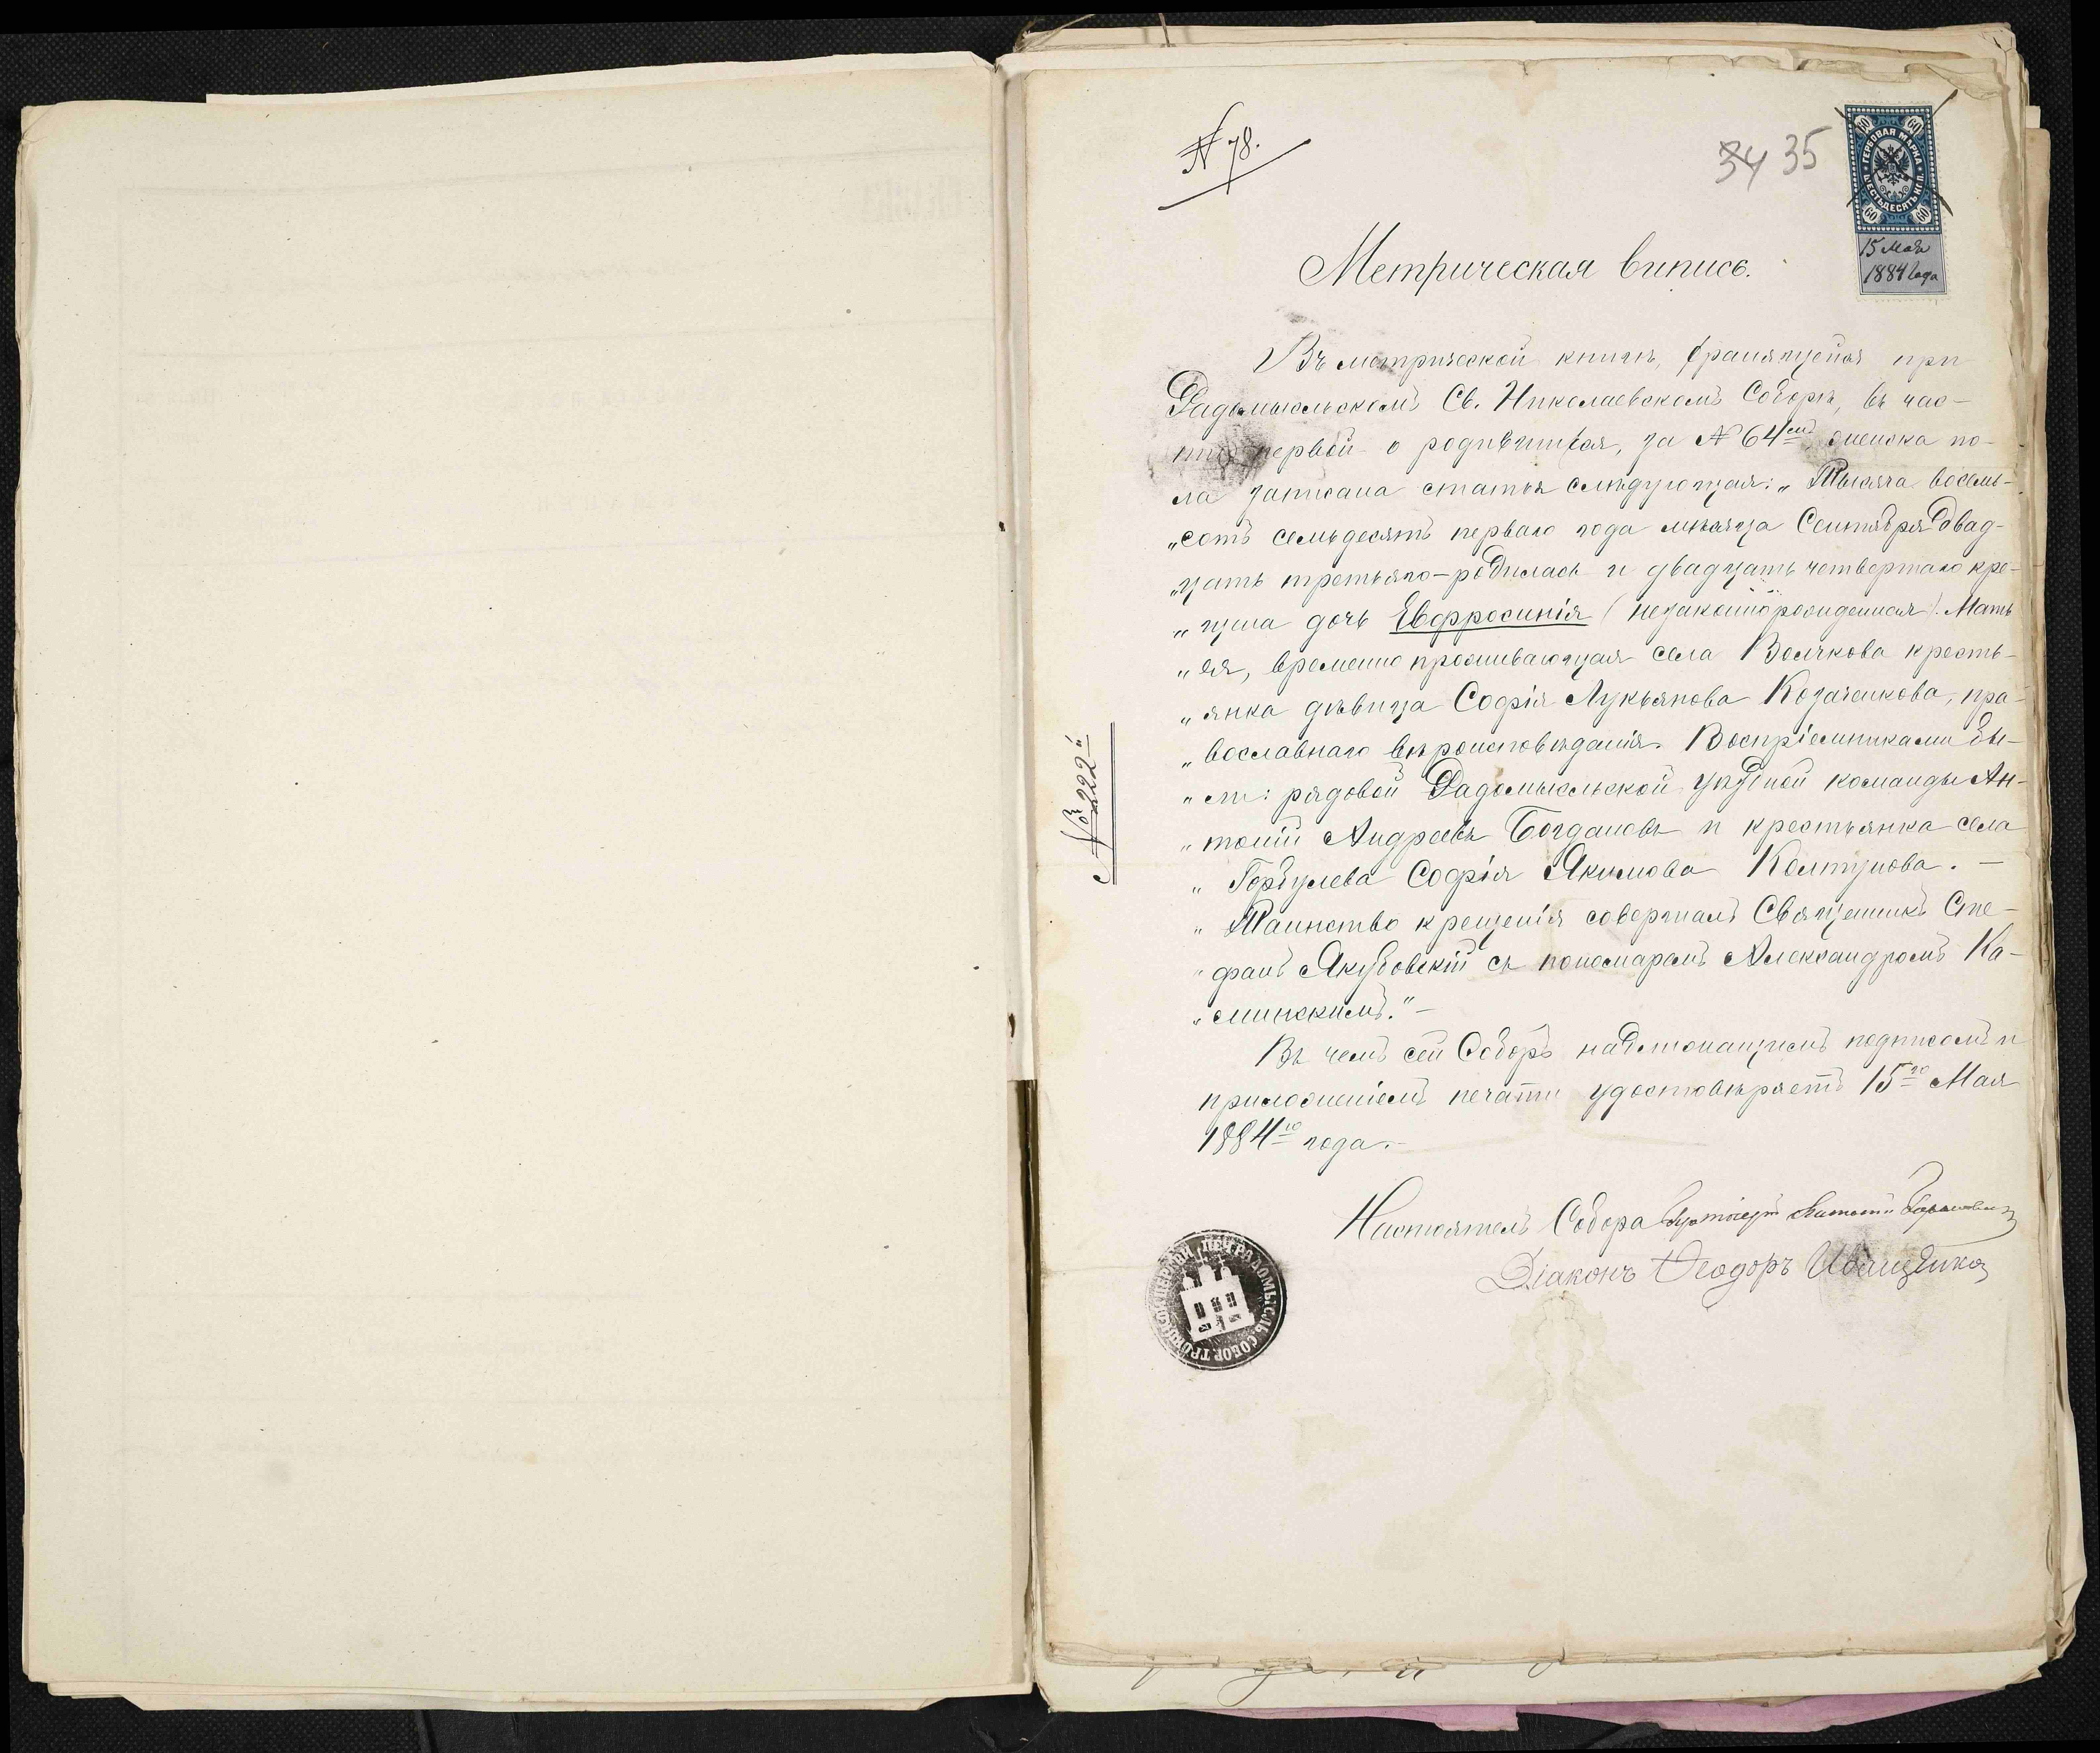 N 78.
34 35
60 60
ГЕРБОВАЯ МАРКА
ШЕСТЬДЕСЯТЪ КОП.
60 60
15 Мая
1884 года
Метрическая випись.
Въ метрической книгѣ, хранящейся при
Радомысльскомъ Св. Николаевскомъ Соборѣ, въ час-
ти первой о родившихся, за N 64ем женска по-
ла записана статья слѣдующая: „Тысяча восемь-
„сотъ семьдесятъ перваго года мѣсяца Сентября двад-
„цать третьяго - родилась и двадцать четвертаго кре-
„щена дочь Евфросинія (незаконнорожденная). Мать
„ея, временно проживающая села Волчкова кресть-
„янка дѣвица Софія Лукьянова Козаченкова, пра-
„вославнаго вѣроисповѣданія. Воспріемниками бы-
„ли: рядовой Радомысльской уѣздной команды Ан-
„тоній Андреевъ Богдановъ и крестьянка села
„Горбулева Софія Якимова Колтунова. —
„Таинство крещенія совершалъ Священникъ Сте-
„фанъ Якубовскій съ пономаремъ Александромъ Ка-
„минскимъ." —
Въ чемъ сей Соборъ надлежащимъ подписомъ и
приложеніемъ печати удостовѣряетъ 15го Мая
1884го года. —
Настоятель Собора Протоіерей
Діаконъ Ѳеодоръ
№ 222й